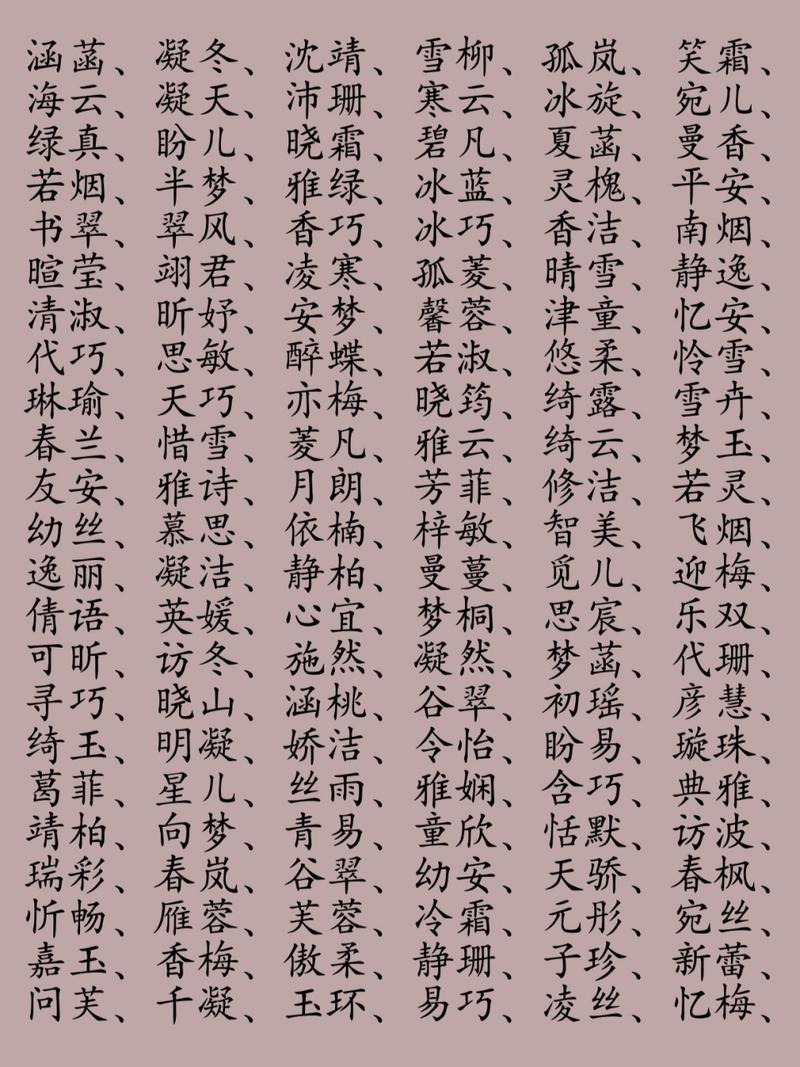 涵菡、凝冬、沈靖、雪柳、孤岚、笑霜、
海云、凝天、沛珊、寒云、冰旋、宛儿、
绿真、盼儿、晓霜、碧凡、夏菡、曼香、
若烟、半梦、雅绿、冰蓝、灵槐、平安、
书翠、翠风、香巧、冰巧、香洁、南烟、
暄莹、翊君、凌寒、孤菱、晴雪、静逸、
清淑、昕妤、安梦、馨蓉、津童、忆安、
代巧、思敏、醉蝶、若淑、悠柔、怜雪、
琳瑜、天巧、亦梅、晓筠、绮露、雪卉、
春兰、惜雪、菱凡、雅云、绮云、梦玉、
友安、雅诗、月朗、芳菲、修洁、若灵、
幼丝、慕思、依楠、梓敏、智美、飞烟、
逸丽、凝洁、静柏、曼蔓、觅儿、迎梅、
倩语、英媛、心宜、梦桐、思宸、乐双、
可昕、访冬、施然、凝然、梦菡、代珊、
寻巧、晓山、涵桃、谷翠、初瑶、彦慧、
绮玉、明凝、娇洁、令怡、盼易、璇珠、
葛菲、星儿、丝雨、雅娴、含巧、典雅、
靖柏、向梦、青易、童欣、恬默、访波、
瑞彩、春岚、谷翠、幼安、天骄、春枫、
忻畅、雁蓉、芙蓉、冷霜、元彤、宛丝、
嘉玉、香梅、傲柔、静珊、子珍、新蕾、
问芙、千凝、玉环、易巧、凌丝、忆梅、